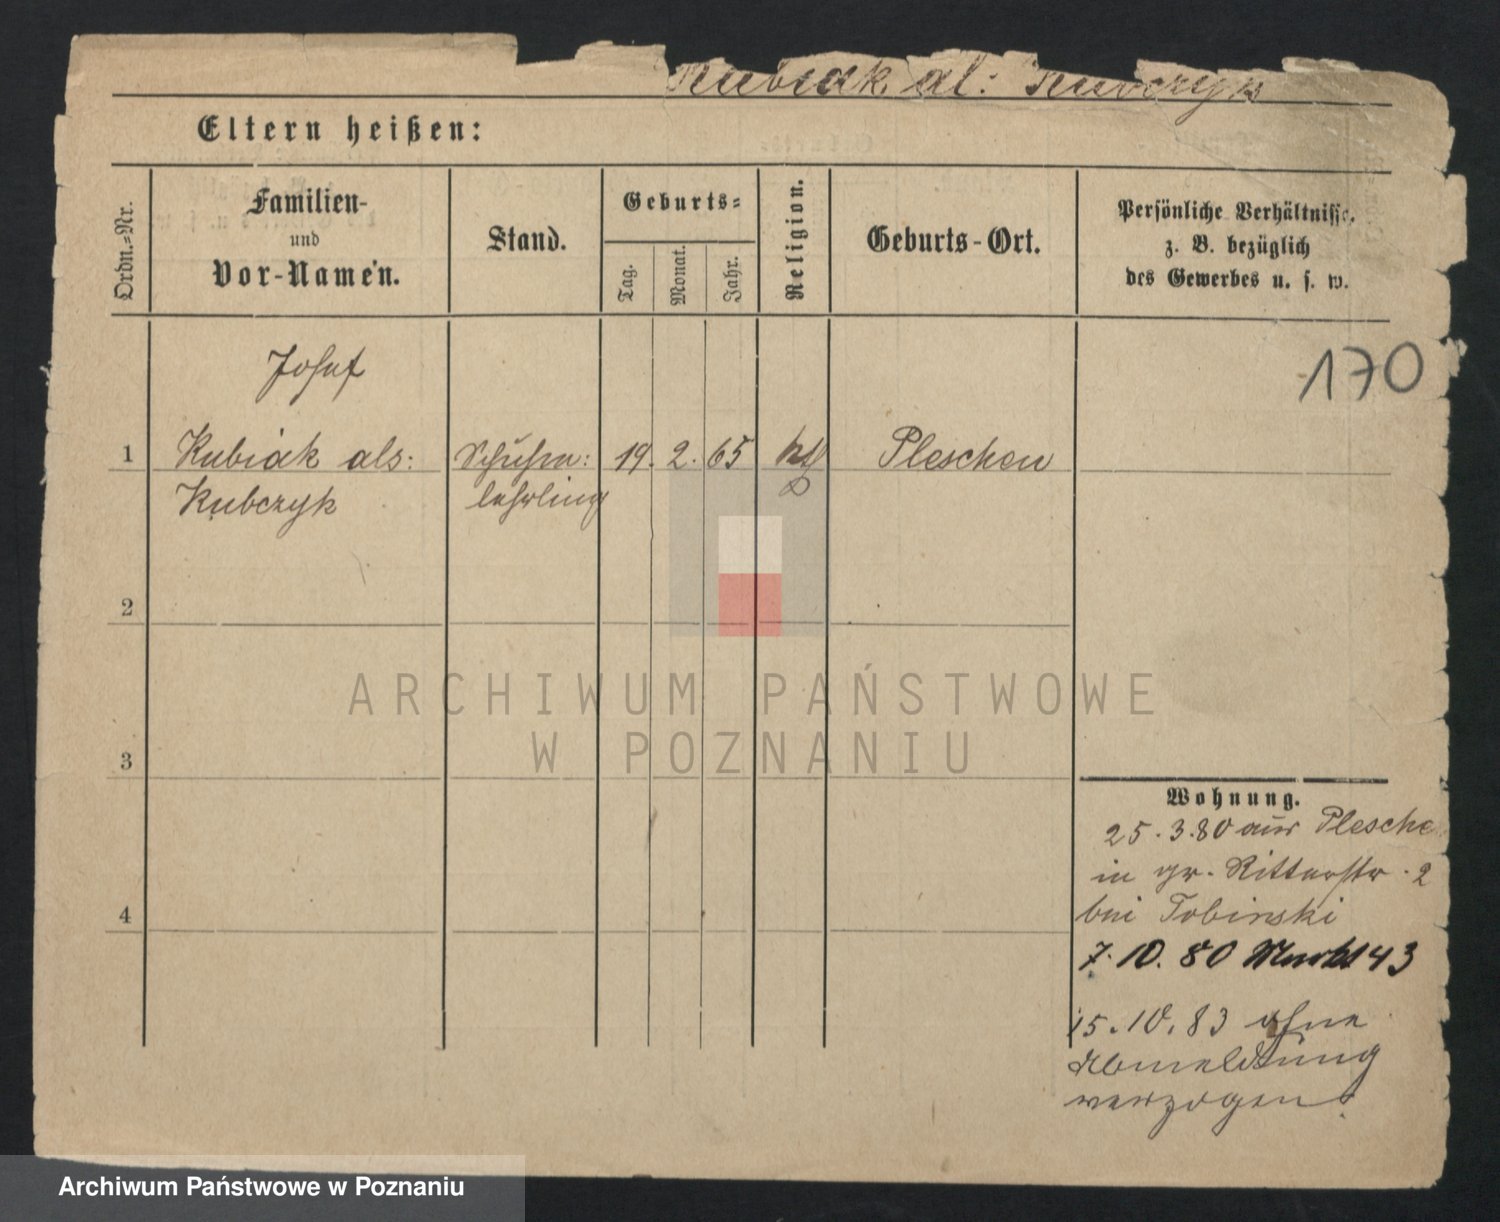 Kubiak al: Kubczyk
Eltern heißen:
Ordn.=Nr.
Familien-
und
Vor-Namen.
Stand.
Geburts=
Tag.
Monat.
Jahr.
Religion.
Geburts-Ort.
Persönliche Verhältnisse.
z. B. bezüglich
des Gewerbes u. s. w.
170
Josef
1 Kubiak als: Schuhm: 19. 2. 65 kth Pleschen
Kubczyk lehrling
2
ARCHIWUM PAŃSTWOWE
W POZNANIU
3
Wohnung.
25.3.80 aus Plesche
in gr. Ritterstr. 2
bei Tobinski
4
7.10.80 Markt 43
15.10.83 ohne
Abmeldung
verzogen.
Archiwum Państwowe w Poznaniu